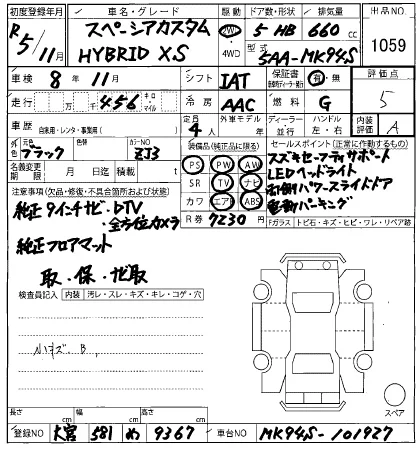 初度登録年月 車名・グレード 駆動 ドア数・形状 排気量 出品NO
R5/11月 スペーシアカスタム HYBRID XS 2WD 4WD 5 HB 660 cc 1059
型式 5AA-MK94S
車検 8年11月 シフト IAT 保証書 有・無 評価点
走行 万 千 456 キロ・マイル 冷房 AAC 燃料 G 5
車歴 自家用・レンタ・事業用( ) 定員 4人 外車モデル 年 ディーラー・並行 ハンドル 左・右 内装 A
元色 ブラック 色替 カラーNO ZJ3 装備品(純正品に限る) セールスポイント(正常に作動するもの)
名義変更期限 月 日迄 積込 月 日 PS PW AW スズキセーフティサポート
注意事項(欠品・修復・不具合箇所および状態) SR TV ナビ LEDヘッドライト
純正9インチナビ・DTV カワ エアB ABS 右側パワースライドドア
全方位カメラ R券 7230 電動パーキング
純正フロアマット Fガラス トビ石・キズ・ヒビ・ワレ・リペア跡
取・保・ナビ取
検査員記入 内装 汚レ・スレ・キズ・キレ・コゲ・穴
小キズ.B,
スペア
長さ cm 幅 cm 高さ cm
登録NO 大宮 581 め 9367 車台NO MK94S-101927